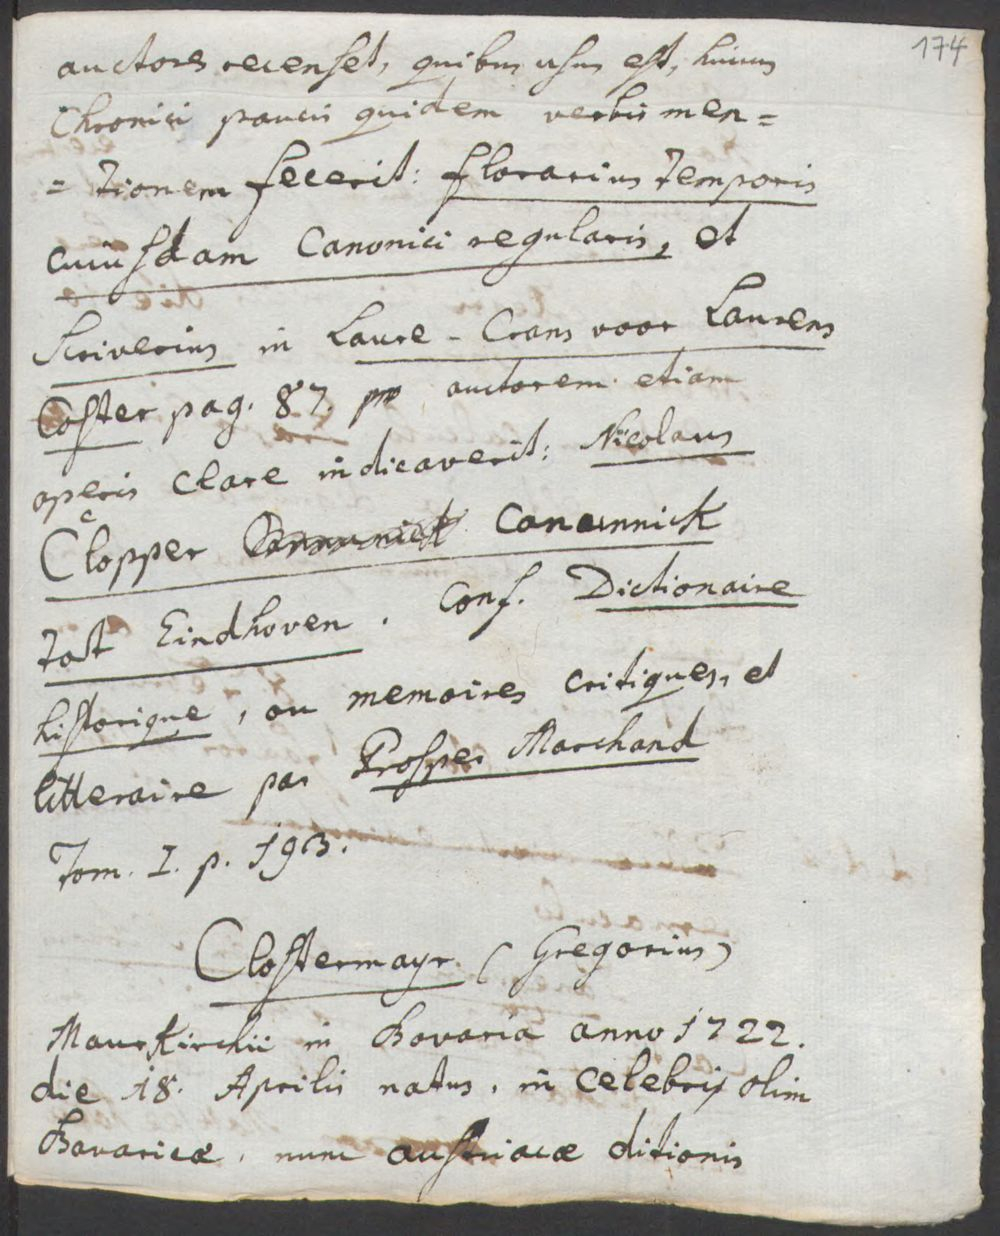 174
auctores recenset, quibus usus est, huius
Chronici paucis quidem verbis men=
=tionem fecerit: florarius temporis
cuiusdam Canonici regularis, et
Scriverius in Laure-Crans voor Laurens
Coster pag. 87. auctorem etiam
operis clare indicaverit: Nicolaus
Clopper Canunnick
tot Eindhoven. Conf. Dictionaire
historique, ou memoires critiques, et
litteraire par Prosper Marchand
Tom. I. p. 193.
Clostermayr (Gregorius)
Maurkirchii in Bavaria anno 1722.
die 18. Aprilis natus, in celebri olim
Bavaricæ, nunc austriacæ ditionis